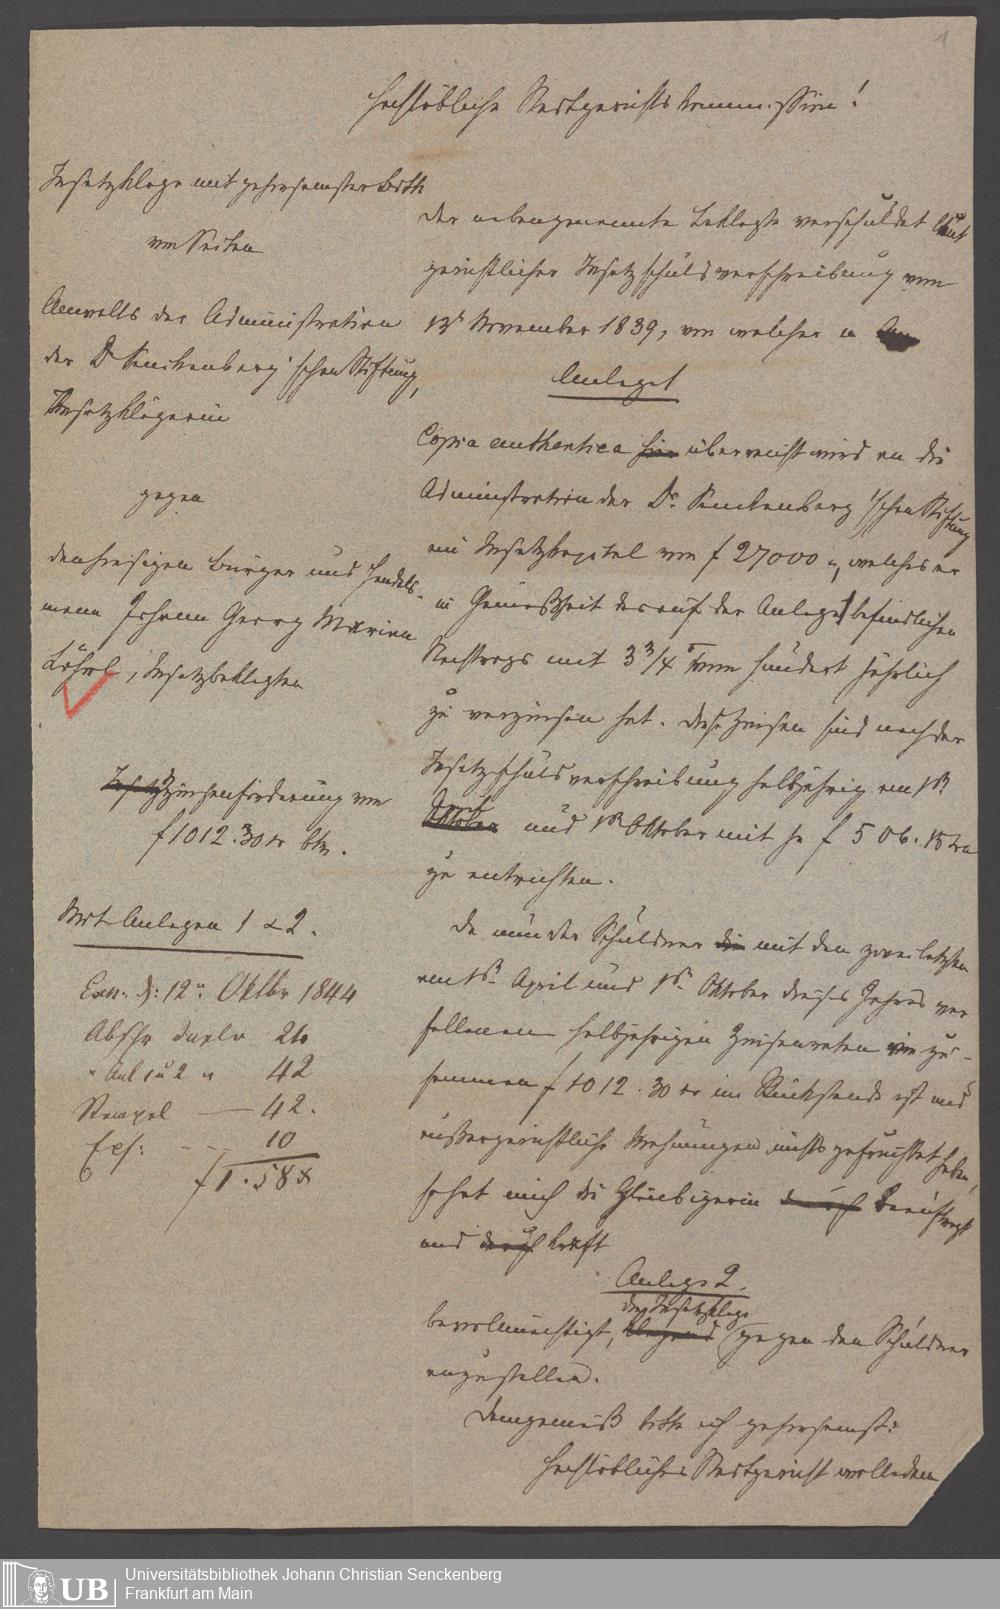 1
Hochlöbliche Stadtgerichtskommission!
Insatzklage mit gehorsamster Bitte
von Seiten
Anwalts der Administration
der Dr Senckenberg'schen Stiftung,
Insatzklägerin
gegen
den hiesigen Bürger und Handels-
mann Johann Georg Marian
Löhrl, Insatzbeklagten
Insatzzinsenforderung von
f 1012.30 xr btr.
Mit Anlagen 1 & 2.
Exn. d: 12n Oktbr 1844
Abschr duplo 24
" Anl 1 u 2 " 42
Stempel — 42.
Exh: — 10
f 1.58 x
Der nebengenannte Beklagte verschuldet laut
gerichtlicher Insatzschuldverschreibung vom
13t November 1839, von welcher in
Anlage 1
Copia authentica hier überreicht wird an die
Administration der Dr. Senckenberg'schen Stiftung
ein Insatzkapital von f 27000 ", welches er
in Gemäßheit des auf der Anlage 1 befindlichen
Nachtrags mit 3 3/4 vom hundert jährlich
zu verzinsen hat. Diese Zinsen sind nach der
Insatzschuldverschreibung halbjährig am 1st
Oktober April und 1st Oktober mit je f 506.15 xrn
zu entrichten.
Da nun der Schuldner die mit den zwei letzten
am 1st April und 1st Oktober dieses Jahres ver
fallenen halbjährigen Zinsenraten von zu-
sammen f 1012.30 xr im Rückstande ist und
außergerichtliche Mahnungen nichts gefruchtet haben,
so hat mich die Gläubigerin durch beauftragt
und durch kraft
Anlage 2.
die Insatzklage
bevollmächtigt, klagend gegen den Schuldner
anzustellen.
Demgemäß bitte ich gehorsamst:
Hochlöbliches Stadtgericht wolle den
UB
Universitätsbibliothek Johann Christian Senckenberg
Frankfurt am Main